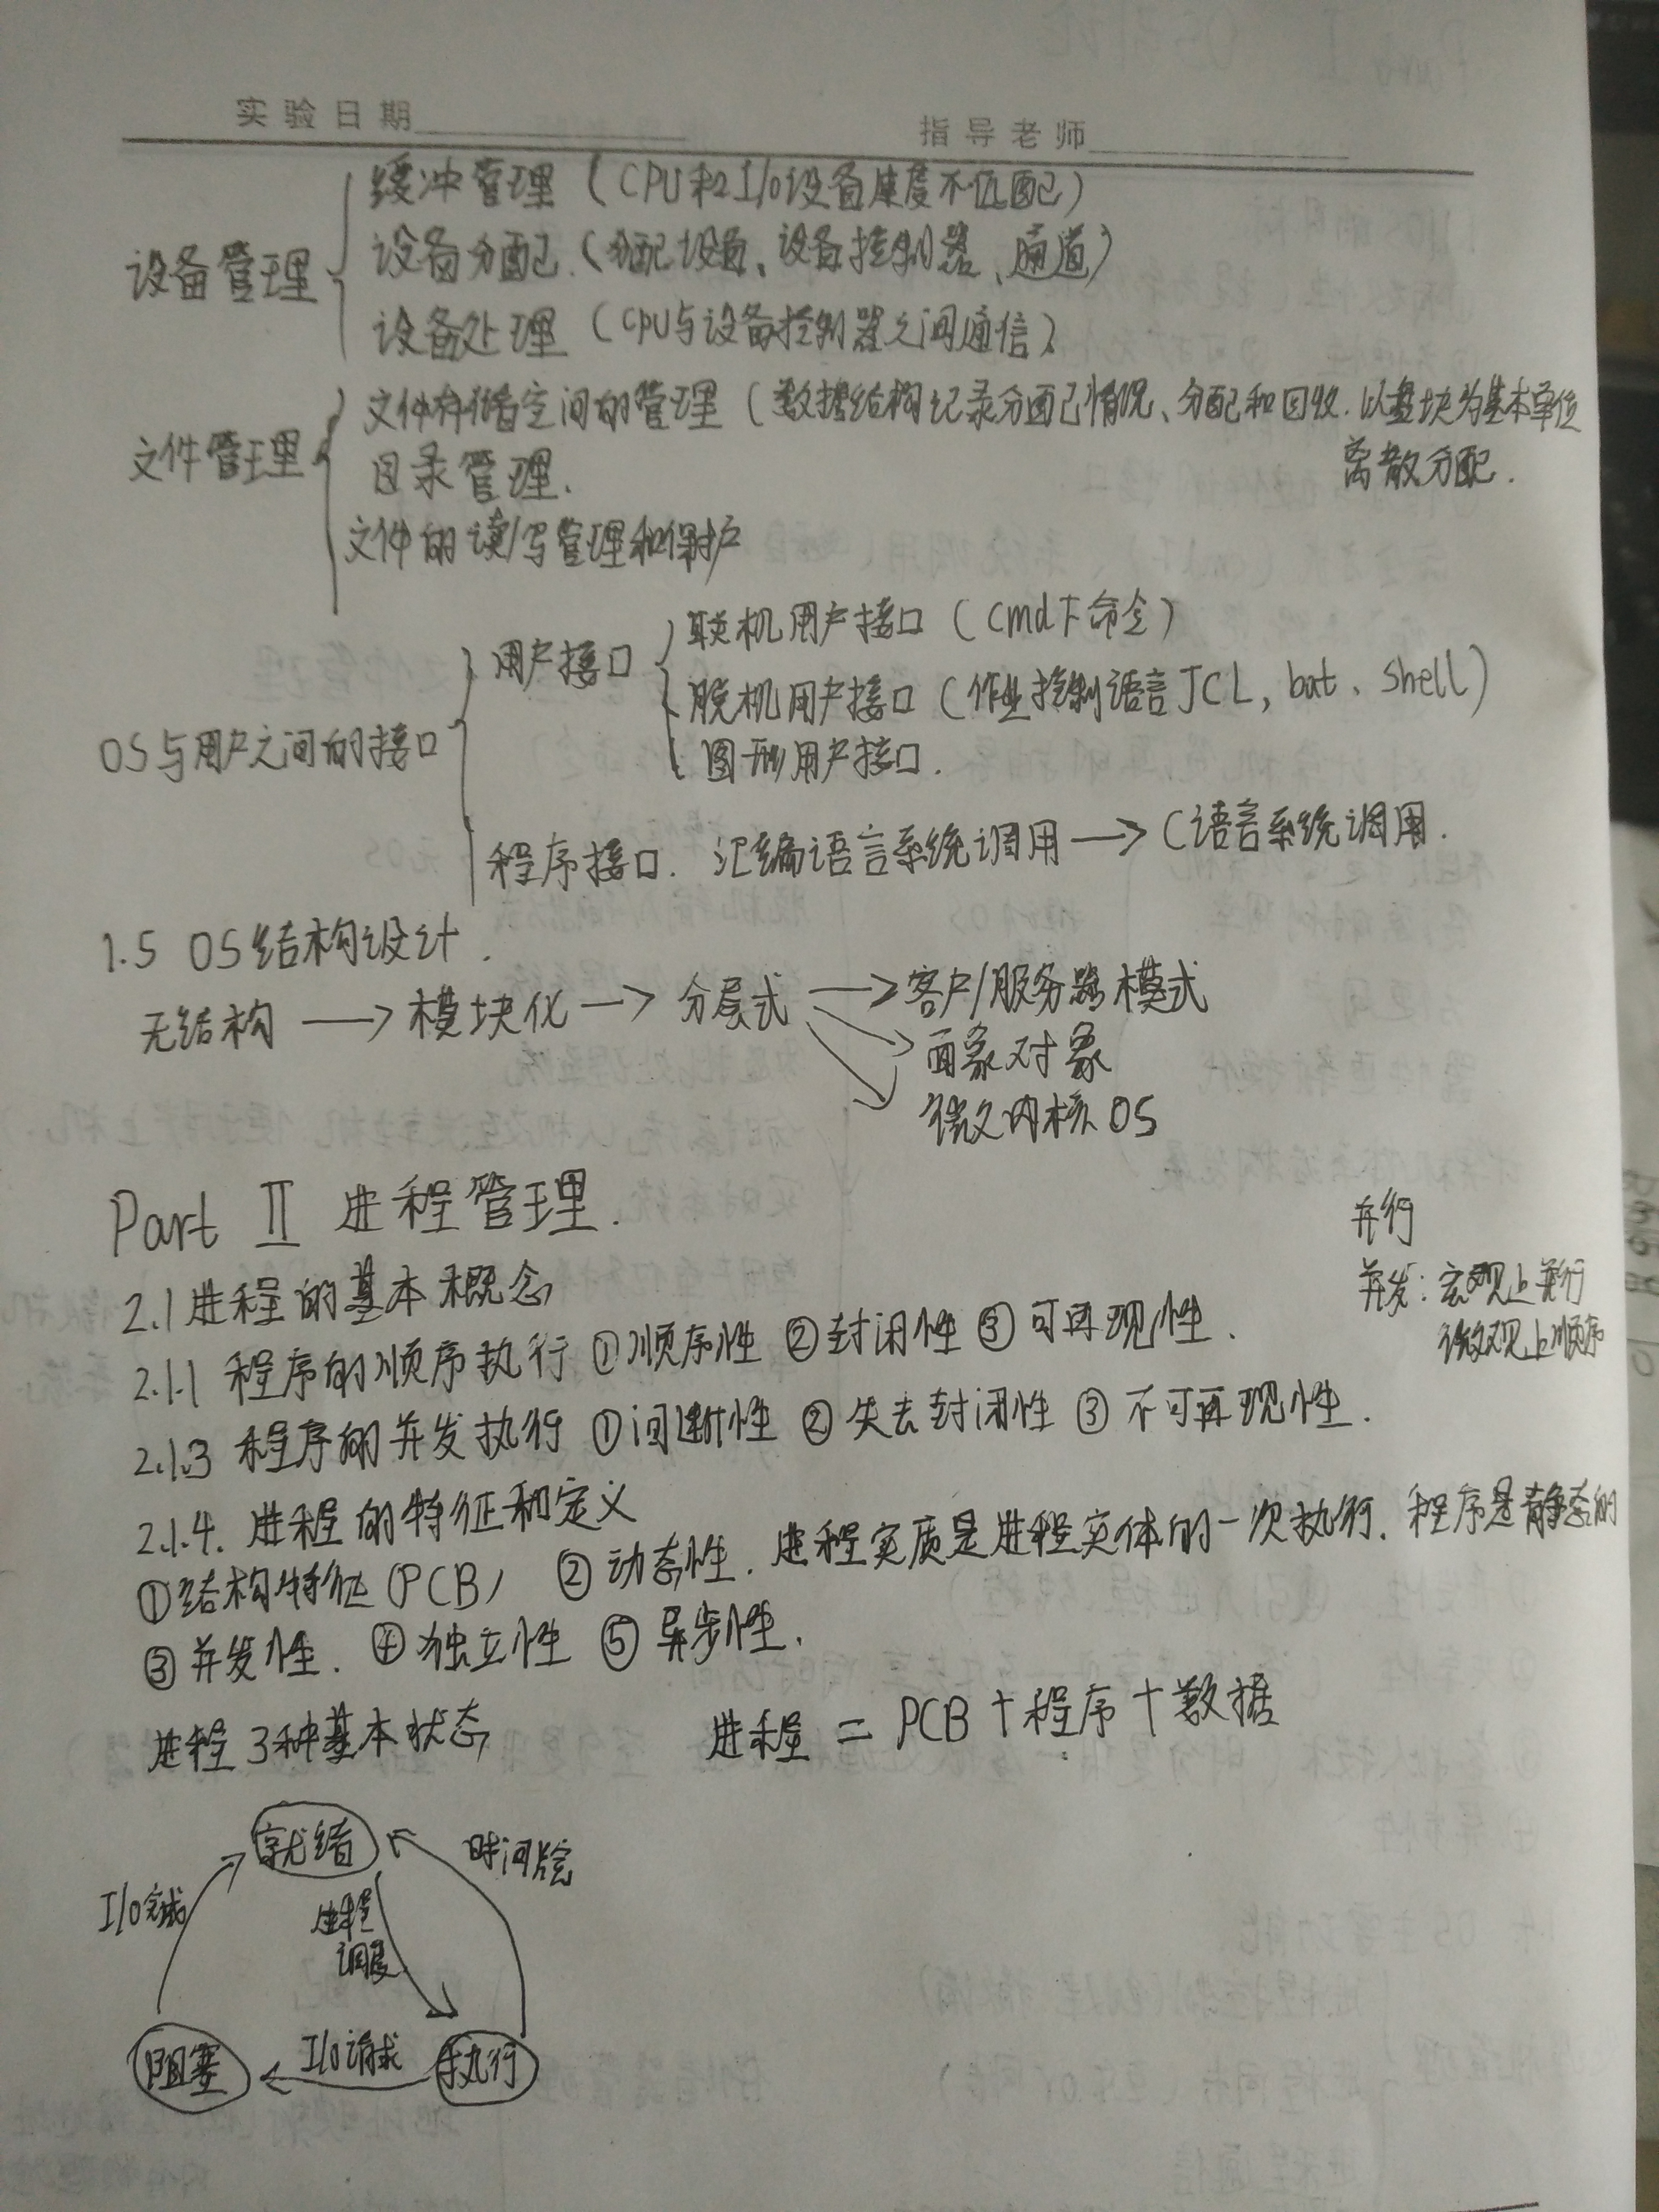 实验日期 指导老师
缓冲管理（CPU和I/O设备速度不匹配）
设备管理 设备分配.（分配设备、设备控制器、通道）
设备处理（CPU与设备控制器之间通信）
文件存储空间的管理（数据结构记录分配情况、分配和回收.以盘块为基本单位
离散分配.
文件管理 目录管理.
文件的读/写管理和保护
用户接口 联机用户接口（cmd下命令）
脱机用户接口（作业控制语言JCL, bat、shell）
图形用户接口.
OS与用户之间的接口
程序接口. 汇编语言系统调用 → C语言系统调用.
1.5 OS结构设计.
无结构 → 模块化 → 分层式 → 客户/服务器模式
面象对象
微内核OS
Part II 进程管理.
并行
并发：宏观上并行
微观上顺序
2.1 进程的基本概念
2.1.1 程序的顺序执行 ①顺序性 ②封闭性 ③可再现性.
2.1.3 程序的并发执行 ①间断性 ②失去封闭性 ③不可再现性.
2.1.4. 进程的特征和定义
①结构特征（PCB） ②动态性. 进程实质是进程实体的一次执行. 程序是静态的
③并发性. ④独立性 ⑤异步性.
进程3种基本状态 进程 = PCB + 程序 + 数据
就绪
时间片完
I/O完成
进程
调度
阻塞 I/O请求 执行